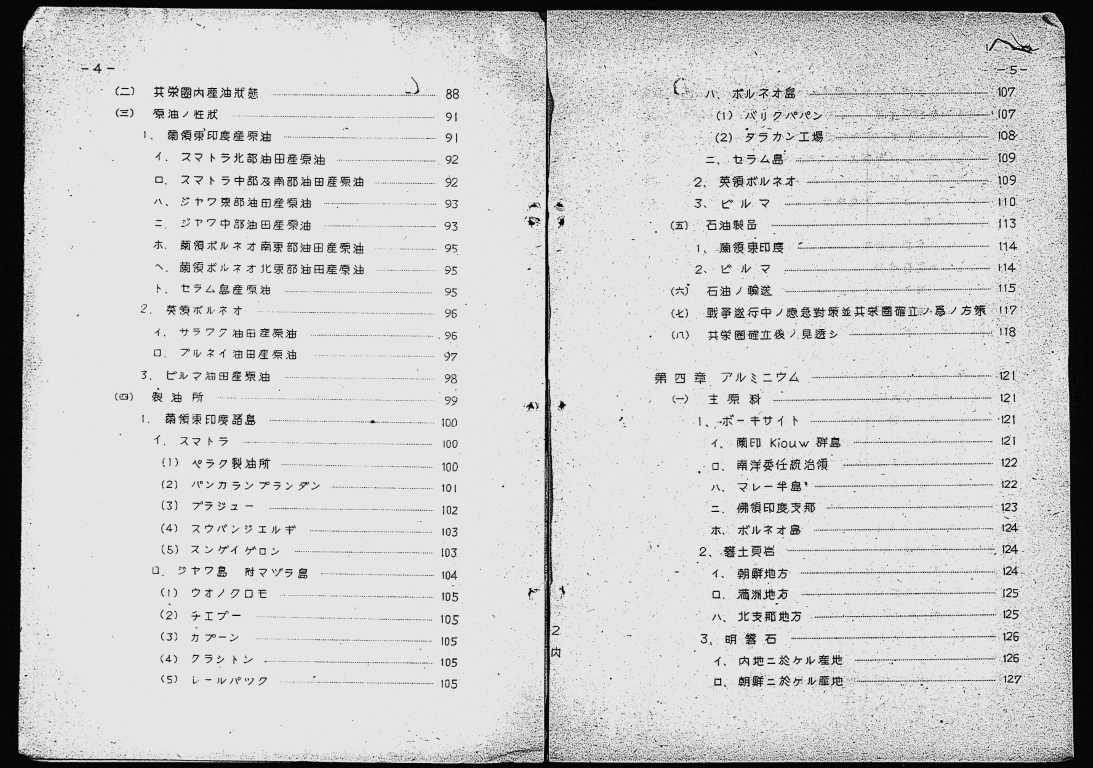 -4-
(二) 共栄圏内産油狀態 88
(三) 原油ノ性狀 91
1. 蘭領東印度産原油 91
イ. スマトラ北部油田産原油 92
ロ. スマトラ中部及南部油田産原油 92
ハ. ジヤワ東部油田産原油 93
ニ. ジヤワ中部油田産原油 93
ホ. 蘭領ボルネオ南東部油田産原油 95
ヘ. 蘭領ボルネオ北東部油田産原油 95
ト. セラム島産原油 95
2. 英領ボルネオ 96
イ. サラワク油田産原油 96
ロ. ブルネイ油田産原油 97
3. ビルマ油田産原油 98
(四) 製油所 99
1. 蘭領東印度諸島 100
イ. スマトラ 100
(1) ペラク製油所 100
(2) パンカランブランダン 101
(3) プラジュー 102
(4) スウパンジエルギ 103
(5) スンゲイゲロン 103
ロ. ジヤワ島 附マヅラ島 104
(1) ウオノクロモ 105
(2) チエプー 105
(3) カプーン 105
(4) クラシトン 105
(5) レールパツク 105
-5-
ハ. ボルネオ島 107
(1) バリクパパン 107
(2) タラカン工場 108
ニ. セラム島 109
2. 英領ボルネオ 109
3. ビルマ 110
(五) 石油製品 113
1. 蘭領東印度 114
2. ビルマ 114
(六) 石油ノ輸送 115
(七) 戰爭遂行中ノ應急對策並共栄圏確立ノ爲ノ方策 117
(八) 共栄圏確立後ノ見透シ 118
第四章 アルミニウム 121
(一) 主原料 121
1. ボーキサイト 121
イ. 蘭印 Kiouw 群島 121
ロ. 南洋委任統治領 122
ハ. マレー半島 122
ニ. 佛領印度支那 123
ホ. ボルネオ島 124
2. 礬土頁岩 124
イ. 朝鮮地方 124
ロ. 満洲地方 125
ハ. 北支那地方 125
3. 明礬石 126
イ. 内地ニ於ケル産地 126
ロ. 朝鮮ニ於ケル産地 127
2
内